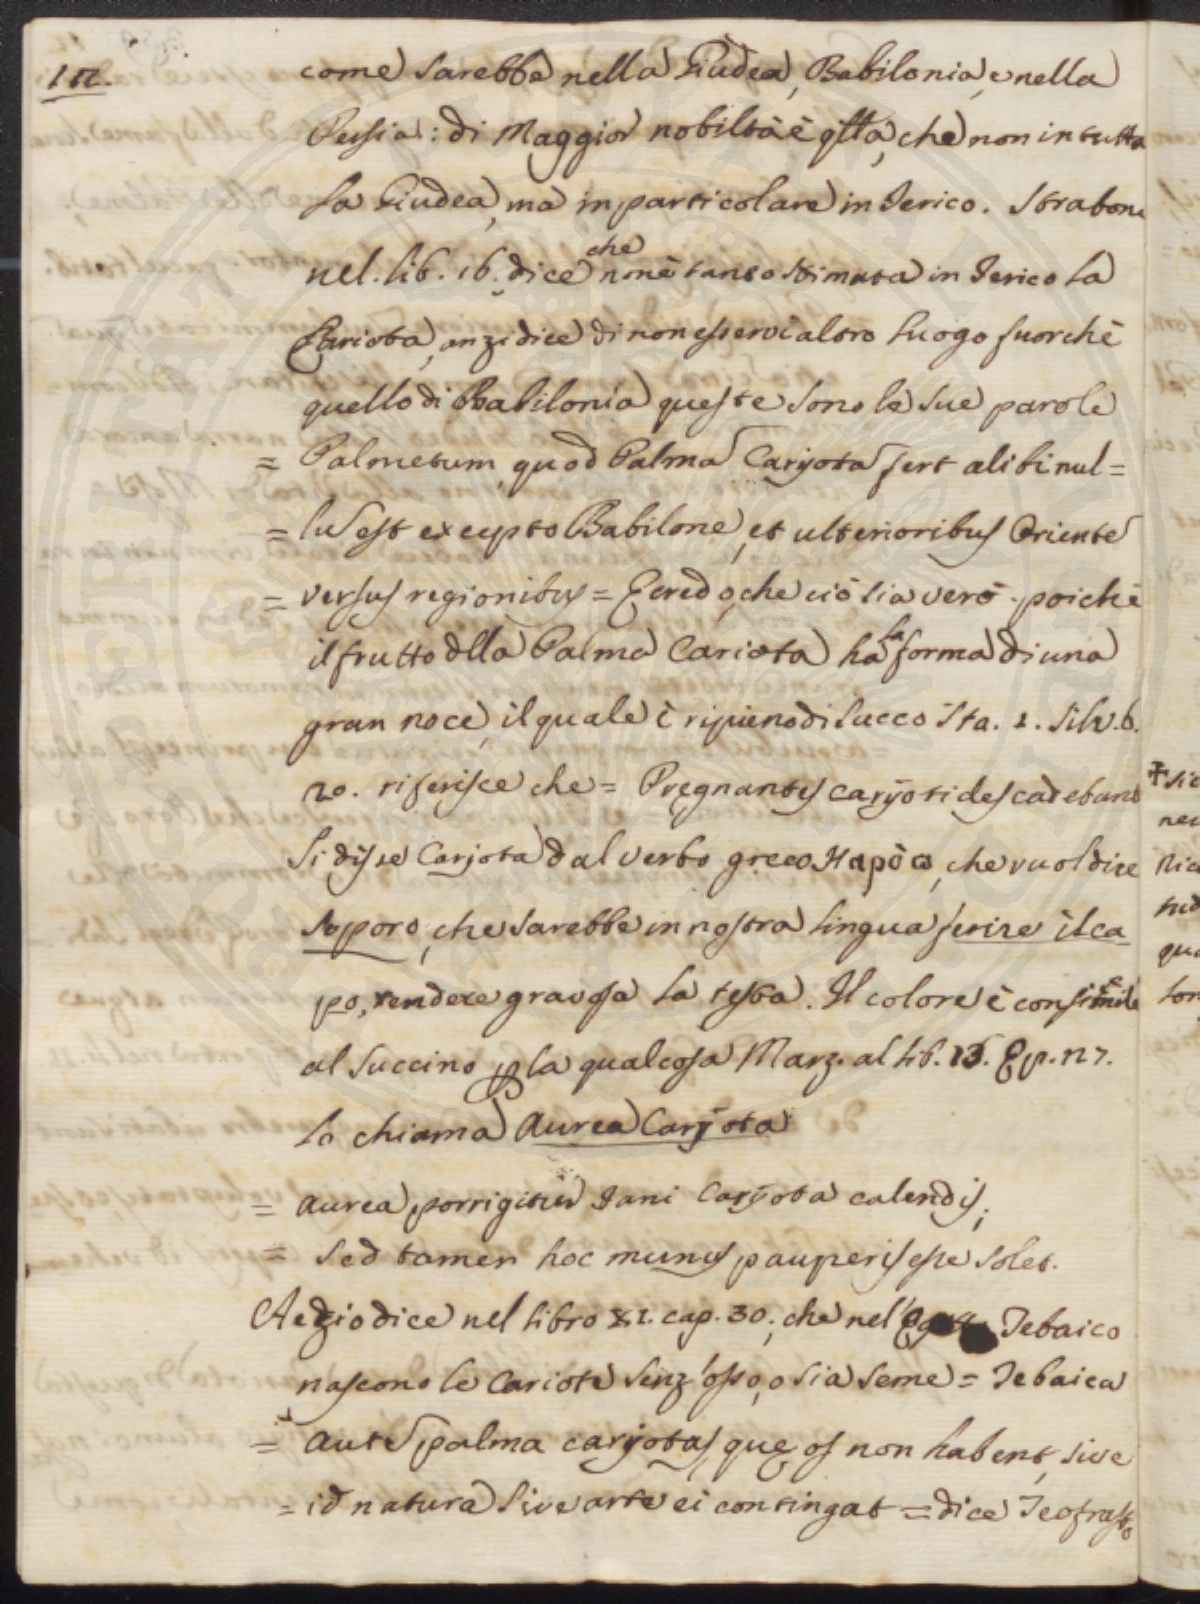 112.
come sarebbe nella Giudea, Babilonia, e nella
Persia: di Maggior nobiltà è qlla, che non in tutta
la Giudea, ma in particolare in Jerico. Strabone
nel. lib. 16. dice che non è tanto stimata in Jerico la
Cariota, anzi dice di non esservi altro luogo fuorchè
quello di Babilonia queste sono le sue parole
= Palmetum, quod Palma Caryota fert alibi nul=
= lũ est excepto Babilone, et ulterioribus Oriente
= versus regionibus = E credo, che ciò sia vero. poichè
il frutto dlla Palma Cariota ha la forma di una
gran noce, il quale è ripieno di succo Sta. 1. Silv. 6.
20. riferisce che = Pręgnantes caryotides cadebant
Si disse Carjota dal verbo greco Καρόω, che vuol dire
soporo, che sarebbe in nostra lingua ferire il ca
po, rendere gravosa la testa. Il colore è consimile
al succino, p la qual cosa Marz. al lib. 13. Ep. 27.
lo chiama Aurea Caryota
= Aurea porrigitur Jani Caryota calendis;
= Sed tamen hoc munus pauperis esse solet.
Aezio dice nel libro XI. cap. 30., che nel Tebaico
nascono le Cariote senz'osso, o sia seme = Tebaica
= autẽ palma caryotas, quę os non habent, sive
= id natura sive arte ei contingat = dice Teofrasto
✝ Sic
nec
Ric
tud
qua
lon